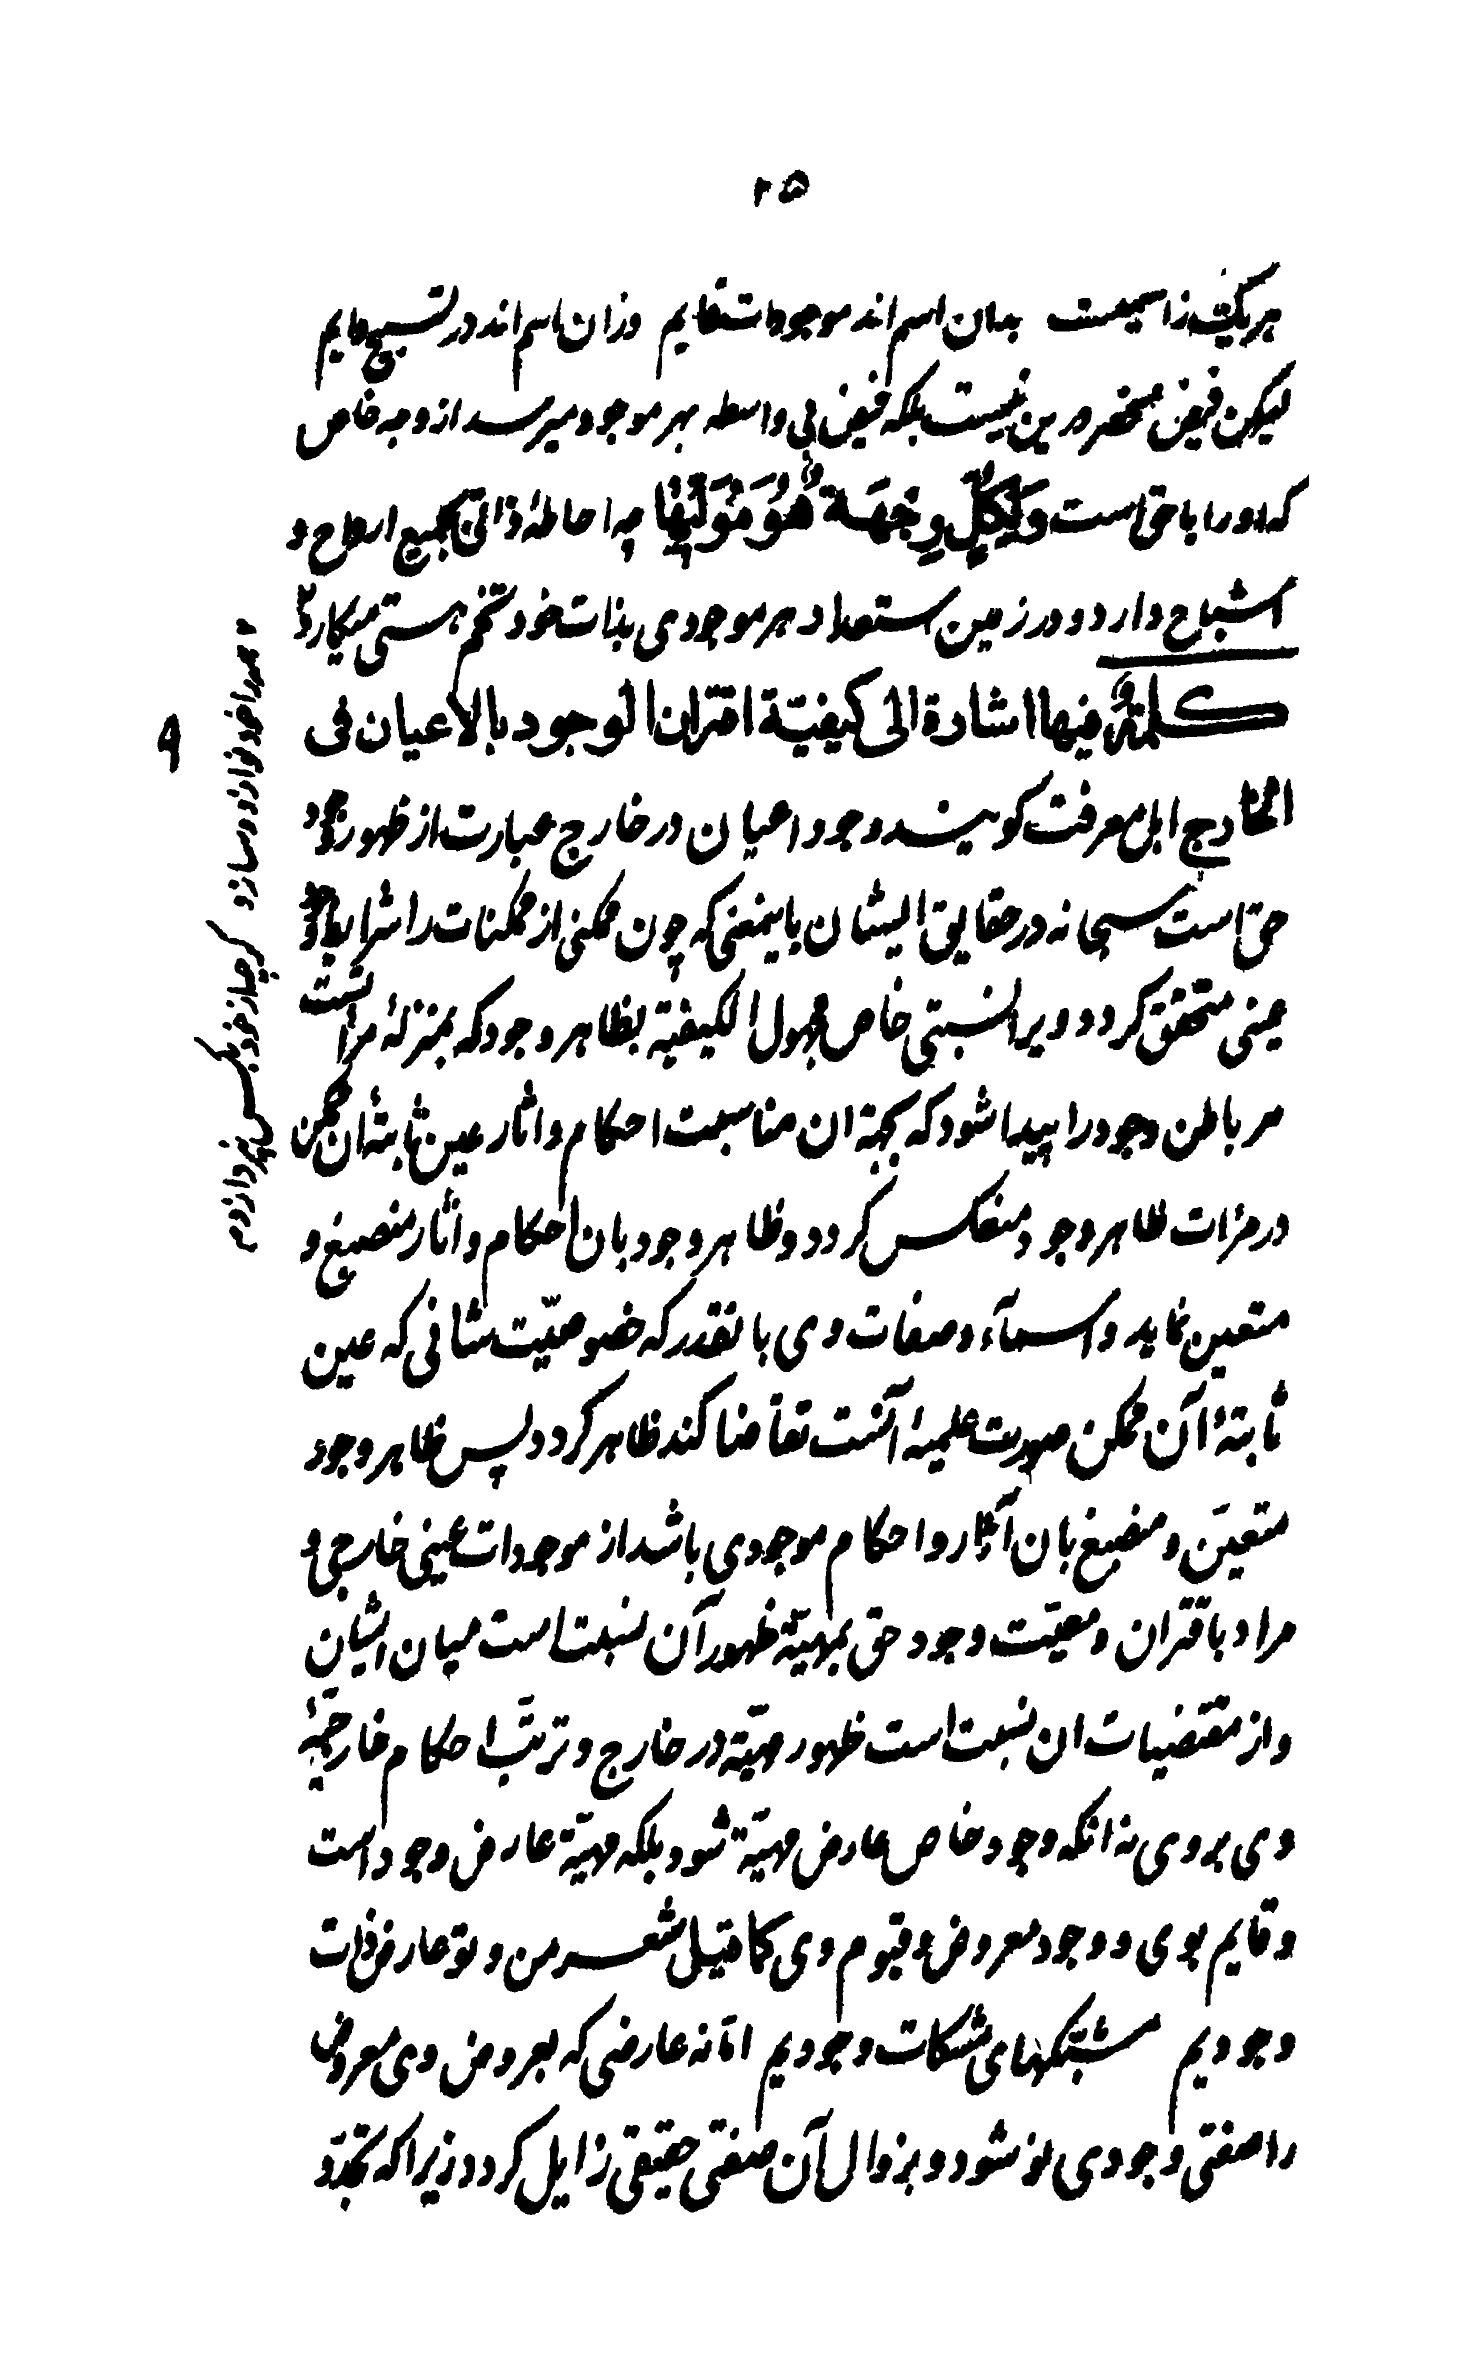 ۲۵
هر یک را اسمیست بدان اسم اند موجودات قایم وزان اسم اند در تسبیح دایم
لیکن فیض منحصر درین نیست بلکه فیض بی واسطه بهر موجود میرسد از وجه خاص
که او را با حق است وَلِكُلٍّ وِجْهَة هُوَ مُوَلِّيهَا چه احاطهٔ ذاتی بجمیع ارواح و
اشباح دارد و در زمین استعداد هر موجودی بذات خود تخم هستی میکارد
كلمة فيها اشارة الى كيفيّة اقتران الوجود بالاعيان فى
الخارج اهل معرفت گویند وجود اعیان در خارج عبارت از ظهور وجود
حق است سبحانه در حقایق ایشان باینمعنی که چون ممکنی از ممکنات را شرایط وجود
عینی متحقق گردد ویرا نسبتی خاص مجهول الکیفیة بظاهر وجود که بمنزلهٔ مرآتست
مر باطن وجود را پیدا شود که بجهة ان مناسبت احکام و اثار عین ثابتهٔ ان ممکن
در مرات ظاهر وجود منعکس گردد و ظاهر وجود بان احکام و اثار منصبغ و
متعین نماید و اسمآء و صفات وی بانقدر که خصوصیّت شانی که عین
ثابتهٔ آن ممکن صورت علمیهٔ آنست تقاضا کند ظاهر گردد پس ظاهر وجود
متعیّن و منصبغ بان آثار و احکام موجودی باشد از موجودات عینی خارجی و
مراد باقتران و معیّت وجود حق بمهیّة ظهور آن نسبت است میان ایشان
و از مقتضیات ان نسبت است ظهور مهیّة در خارج و ترتّب احکام خارجیّهٔ
وی بروی نه انکه وجود خاص عارض مهیّة شود بلکه مهیّة عارض وجود است
و قایم بوی و وجود معروض و قیوم وی کما قیل شعر من و تو عارض ذات
وجودیم مشبکهای مشکات وجودیم امّا نه عارضی که بعروض وی معروض
را صفتی وجودی نو شود و بزوال آن صفتی حقیقی زایل گردد زیرا که تجدّد
همه را خود نوازد و سازد گرچه از خود بکس نپردازد م
۹